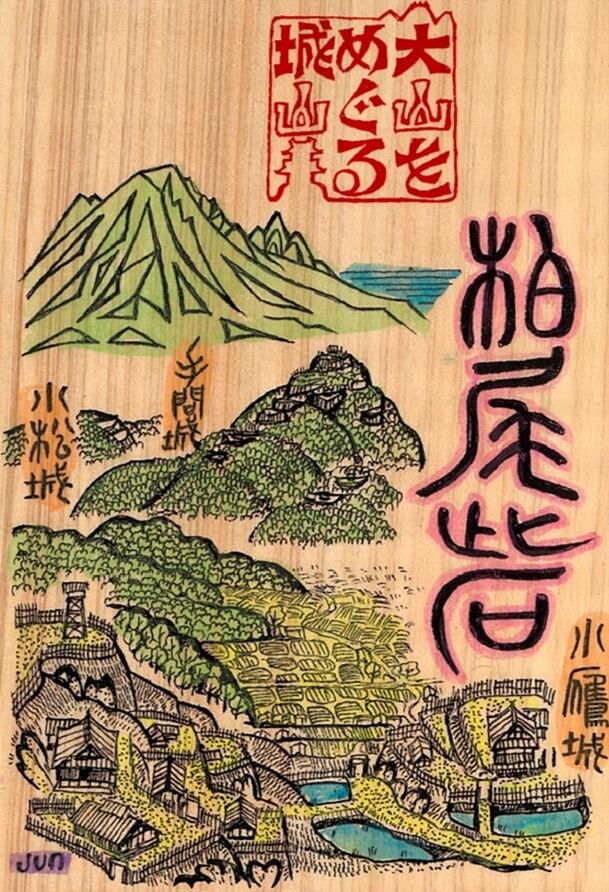 大山を
めぐる
城山
柏尾砦
手間城
小松城
小鷹城
JUN